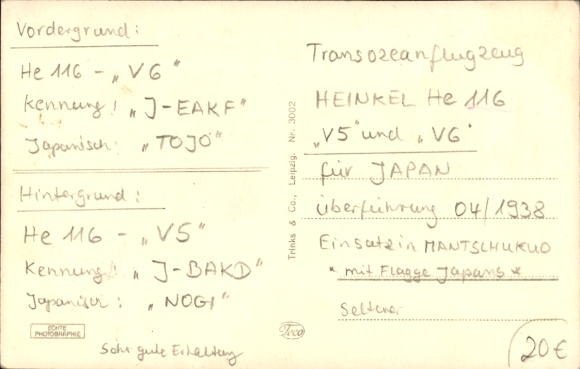 Vordergrund:
He 116 - „V6"
Kennung! „J-EAKF"
Japanisch: „TOJO"
Hintergrund:
He 116 - „V5"
Kennung! „J-BAKD"
Japanisch: „NOGI"
ECHTE
PHOTOGRAPHIE
Sehr gute Erhaltung
Trinks & Co., Leipzig. Nr. 3002
Teco
Transozeanflugzeug
HEINKEL He 116
„V5" und „V6"
für JAPAN
Überführung 04/1938
Einsatz in MANTSCHUKUO
* mit Flagge Japans *
Seltener
20€